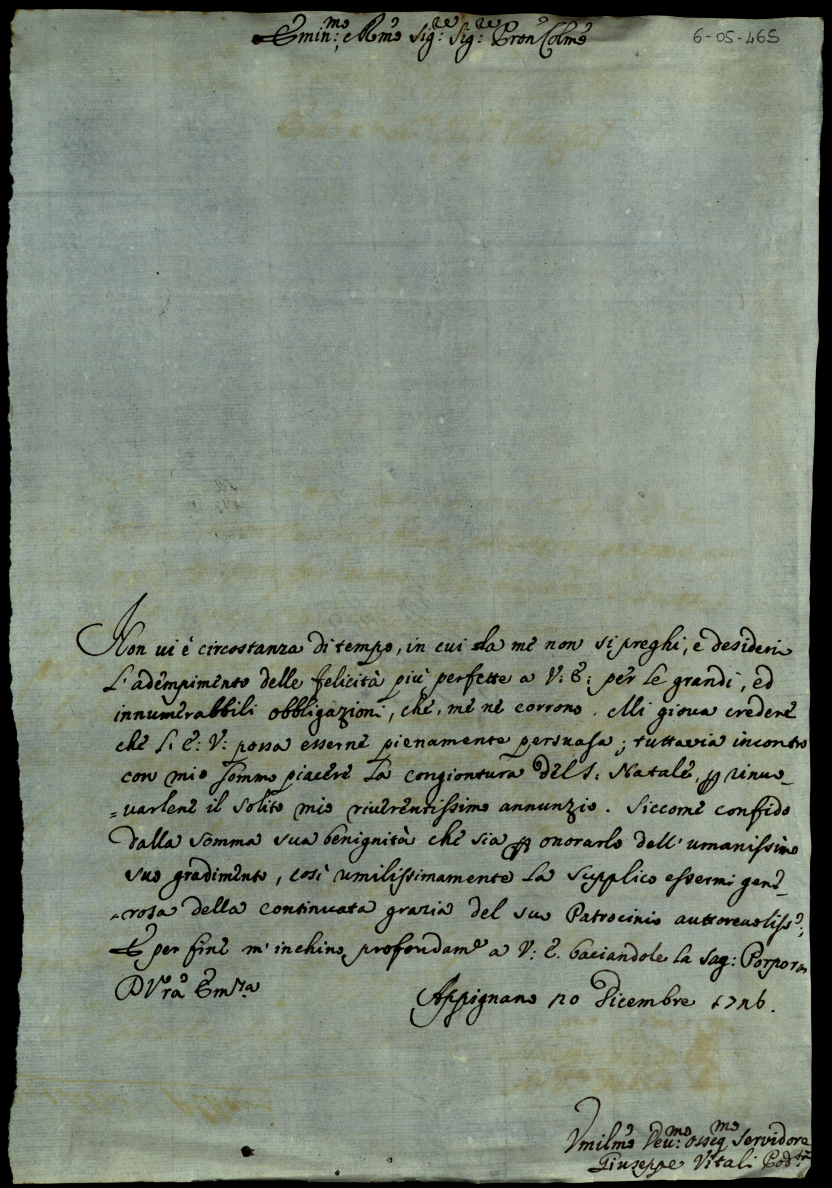 Emin:mo e Rmo Sig:re Sig:re Pron Colmo
6-05-465
Non ui è circostanza di tempo, in cui da me non si preghi, e desideri
l'adempimento delle felicità più perfette a V: E: per le grandi, ed
innumerabbili obbligazioni, che me ne corrono. Mi gioua credere
che l: E: V: possa esserne pienamente persuasa; tuttauia incontro
con mio sommo piacere la congiontura del S: Natale, p rinuo-
=uarlene il solito mio riuerentissimo annunzio. Siccome confido
dalla somma sua benignità che sia p onorarlo dell'umanissimo
suo gradimento, così umilissimamente la supplico essermi gene-
-rosa della continuata grazia del suo Patrocinio auttoreuolisso;
E per fine m'inchino profondame a V: E. baciandole la Sag: Porpora
D Vra Emza
Appignano 20 Dicembre 1726.
Vmilmo Deu:mo osseqmo Servidore
Giuseppe Vitali Pod:tà